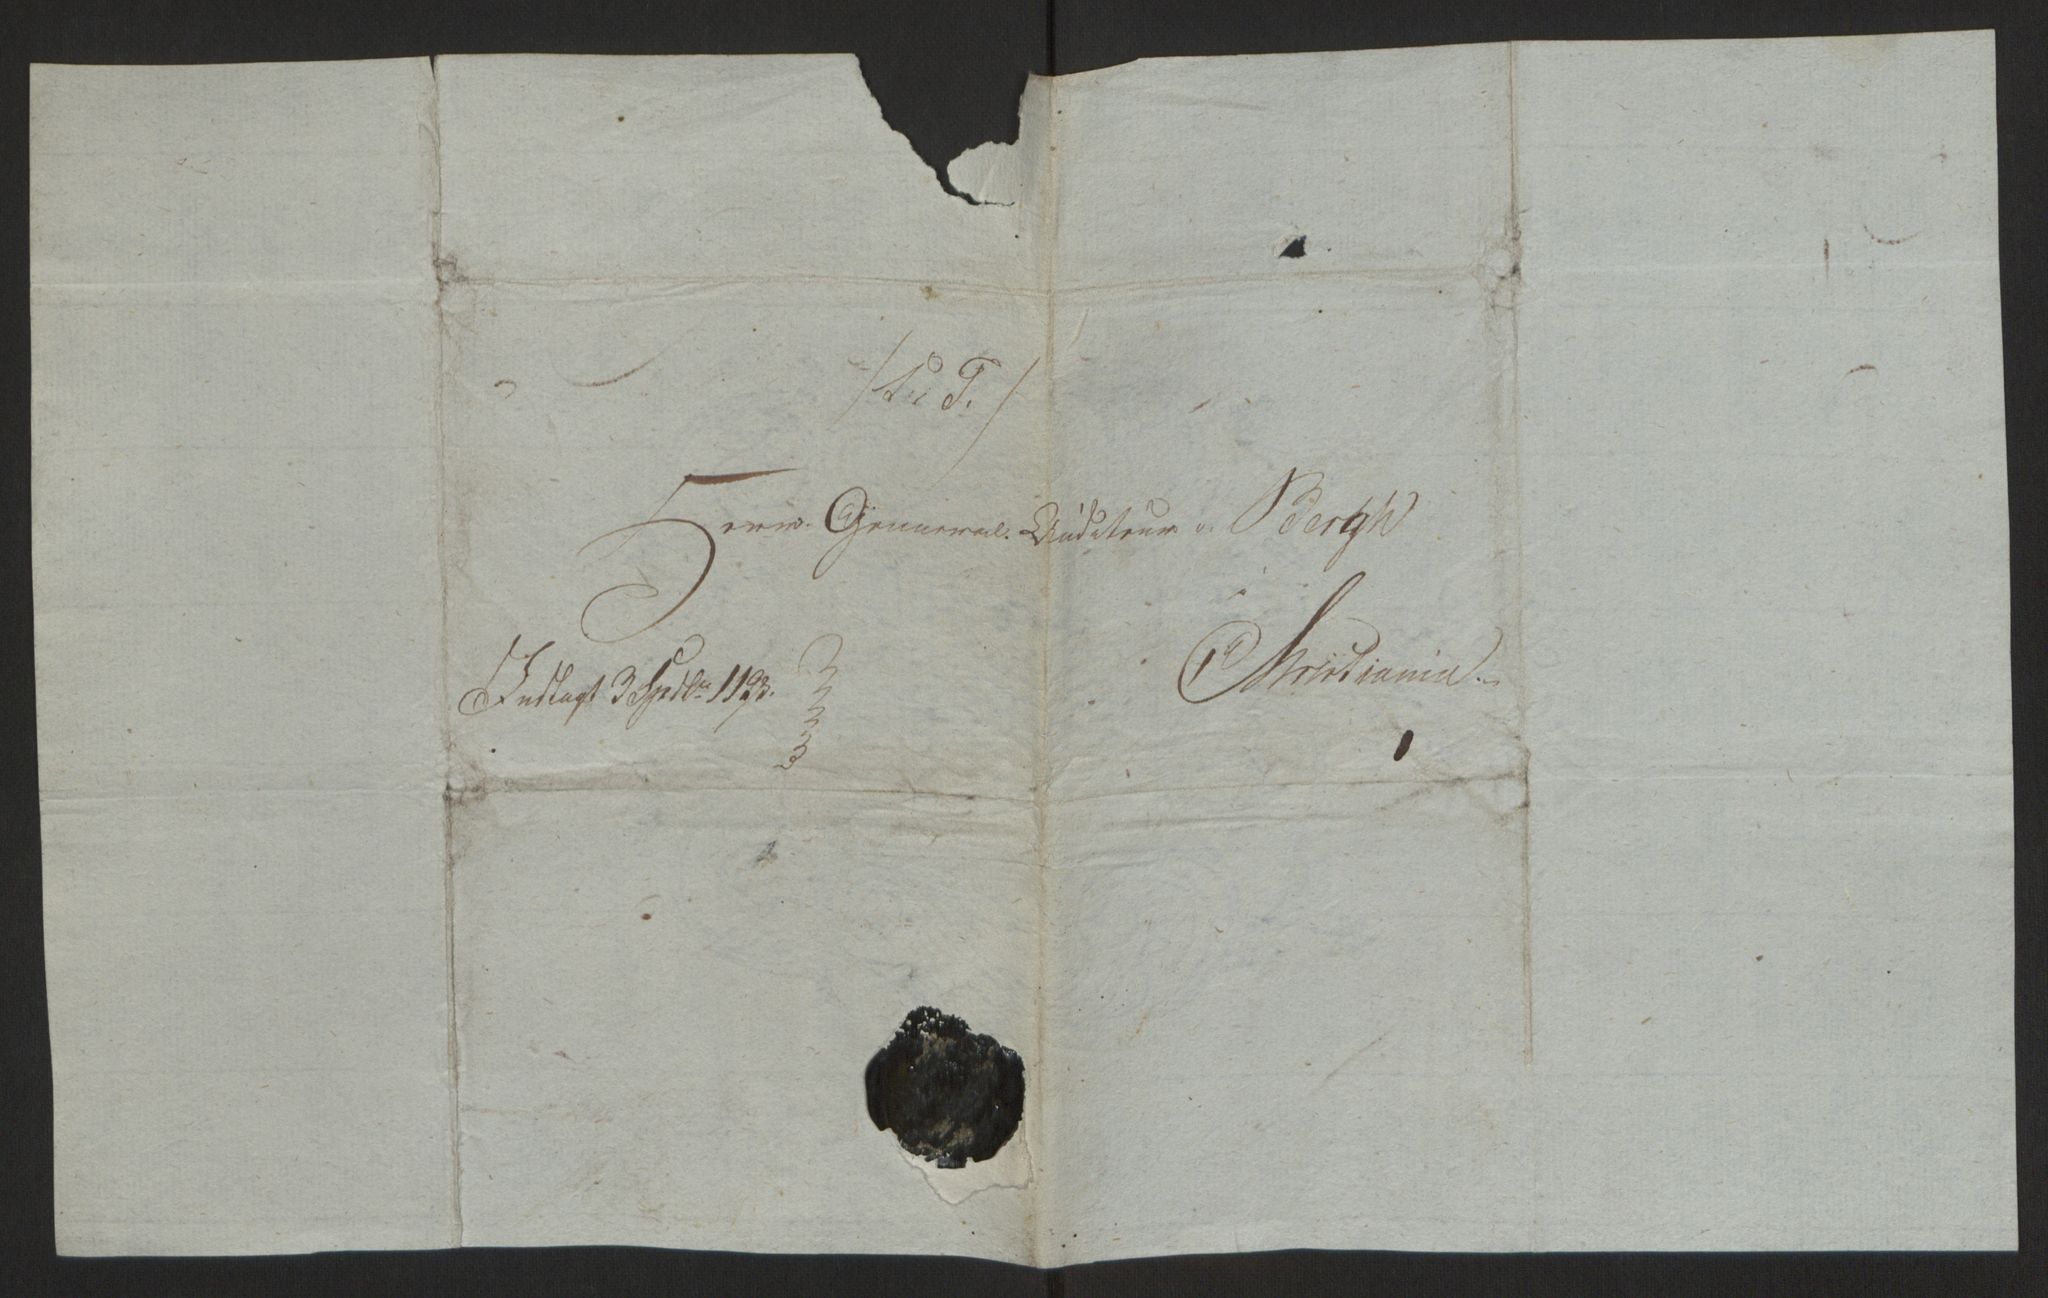 /P: T./
Herr General-Auditeur v. Bergh
Christiania.
Indlagt 3 Spdlr 119 ß.